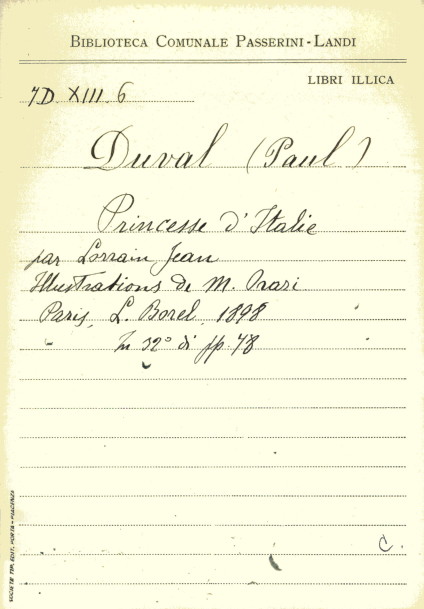 BIBLIOTECA COMUNALE PASSERINI-LANDI
LIBRI ILLICA
7D. XIII. 6
Duval (Paul)
Princesse d'Italie
par Lorrain Jean
Illustrations de M. Orazi
Paris, L. Borel, 1898
In 32° di pp. 78
C.
SOCIETÀ TIP. EDIT. PORTA - PIACENZA